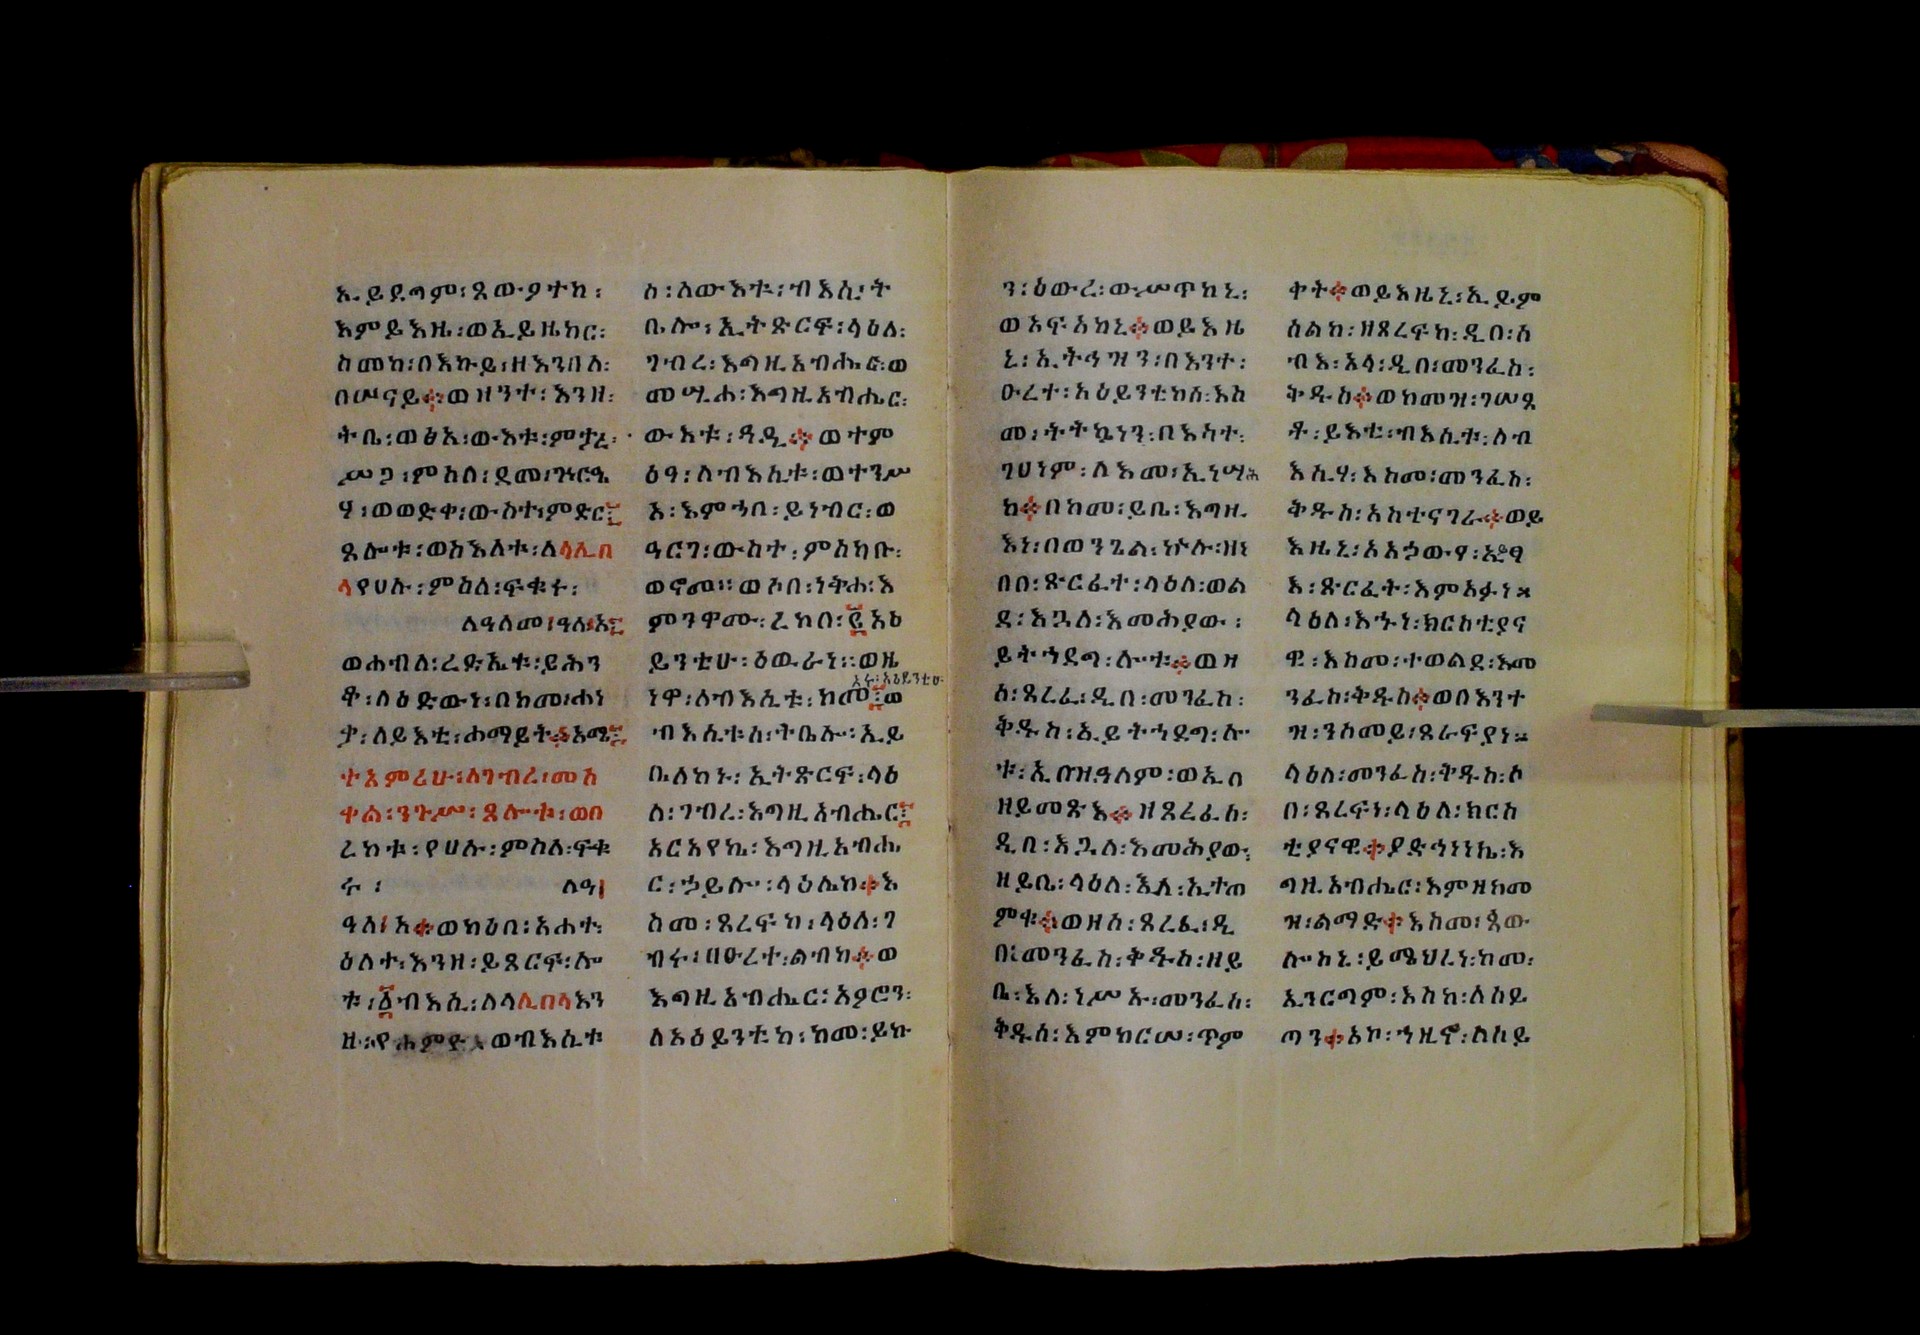 ኢይደግም፡ ጸውዖተከ፡
እምይእዜ፡ ወኢይዜከር፡
ስመከ፡ በእኩይ፡ ዘእንበለ፡
በሠናይ፨ ወዘንተ፡ እንዘ፡
ትቤ፡ ወፅአ፡ ውእቱ፡
ሥጋ፡ ምስለ፡ ደመ፡
ሃ፡ ወወድቀ፡ ውስተ፡ ምድር፨
ጸሎቱ፡ ወስእለቱ፡ ለሳሊበ
ላ የሀሉ፡ ምስለ፡ ፍቁሩ፡
ለዓለመ፡ ዓለ፡ አ፨
ወሐብለ፡ ረድኤቱ፡ ይሕን
ጾ፡ ለዕድውነ፡ በከመ፡ ሐነ
ጻ፡ ለይእቲ፡ ሐማይት፨ አሜ፨
ተአምሪሁ፡ ለገብረ፡ መስ
ቀል፡ ንጉሥ፡ ጸሎቱ፡ ወበ
ረከቱ፡ የሀሉ፡ ምስለ፡ ፍቁ
ሩ፡ ለዓ፡
ዓለ፡ አ፨ ወካዕበ፡ አሐተ፡
ዕለተ፡ እንዘ፡ ይጸርፍ፡ ሎ
ቱ፡ ፩ብእሲ፡ ለሳሊበላ እን
ዘ፡ የሐምድ፡ ወብእሲቱ
ስ፡ ለውእቱ፡ ብእሲ፡ ት
ቤሎ፡ ኢትጽርፍ፡ ላዕለ፡
ገብረ፡ እግዚአብሔር፡ ወ
መሢሐ፡ እግዚአብሔር፡
ውእቱ፡ ዓዲ፨ ወተም
ዕዓ፡ ለብእሲቱ፡ ወተንሥ
አ፡ እምኀበ፡ ይነብር፡ ወ
ዓርገ፡ ውስተ፡ ምስካቡ፡
ወኖመ። ወሶበ፡ ነቅሐ፡ እ
ምንዋሙ፡ ረከበ፡ ፪አዕ
ይንቲሁ፡ ዕዉራነ። ወዜ
ነዋ፡ ለብእሲቱ፡ ከመ፨ ወ
ብእሲቱሰ፡ ትቤሎ፡ ኢይ
ቤለከኑ፡ ኢትጽርፍ፡ ላዕ
ለ፡ ገብረ፡ እግዚአብሔር፨
አርአየኬ፡ እግዚአብሔ
ር፡ ኃይሎ፡ ላዕሌከ፨ እ
ስመ፡ ጸረፍከ፡ ላዕለ፡ ገ
ብሩ፡ በዑረተ፡ ልብከ፨ ወ
እግዚአብሔር፡ አዖሮን፡
ለአዕይንቲከ፡ ከመ፡ ይኩ
ን፡ ዕውረ፡ ውሥጥከኒ፡
ወአፍአከኒ፨ ወይእዜ
ኒ፡ ኢትኅዝን፡ በእንተ፡
ዑረተ፡ አዕይንቲከሰ፡ እስ
መ፡ ትትኴነን፡ በእሳተ፡
ገሀነም፡ ለእመ፡ ኢነሣሕ
ከ፨ በከመ፡ ይቤ፡ እግዚ
እነ፡ በወንጌል፡ ኵሉ፡ ዘነ
በበ፡ ጽርፈተ፡ ላዕለ፡ ወል
ደ፡ እጓለ፡ እመሕያው፡
ይትኀደግ፡ ሎቱ፨ ወዘ
ሰ፡ ጸረፈ፡ ዲበ፡ መንፈስ፡
ቅዱስ፡ ኢይትኀደግ፡ ሎ
ቱ፡ ኢበዝዓለም፡ ወኢበ
ዘይመጽእ፨ ዘጸረፈሰ፡
ዲበ፡ እጓለ፡ እመሕያው፡
ዘይቤ፡ ላዕለ፡ እለ፡ ኢተጠ
ምቁ፨ ወዘሰ፡ ጸረፈ፡ ዲ
በ፡ መንፈስ፡ ቅዱስ፡ ዘይ
ቤ፡ እለ፡ ነሥኡ፡ መንፈሰ፡
ቅዱሰ፡ እምከርሠ፡ ጥም
ቀት፨ ወይእዜኒ፡ ኢይም
ስልከ፡ ዘጸረፍከ፡ ዲበ፡ ሰ
ብእ፡ አላ፡ ዲበ፡ መንፈስ፡
ቅዱስ፨ ወከመዝ፡ ገሠጸ
ቶ፡ ይእቲ፡ ብእሲቱ፡ ለብ
እሲሃ፡ እስመ፡ መንፈስ፡
ቅዱስ፡ አስተናገራ፨ ወይ
እዜኒ፡ ኦአኃውየ፡
እ፡ ጽርፈት፡ እምአፉነ።
ላዕለ፡ እኁነ፡ ክርስቲያና
ዊ፡ እስመ፡ ተወልደ፡ እመ
ንፈስ፡ ቅዱስ፨ ወበእንተ
ዝ፡ ንስመይ፡ ጸራፍያነ።
ላዕለ፡ መንፈስ፡ ቅዱስ፡ ሶ
በ፡ ጸረፍነ፡ ላዕለ፡ ክርስ
ቲያናዊ፨ ያድኅነነኬ፡ እ
ግዚአብሔር፡ እምዘከመ
ዝ፡ ልማድ፨ እስመ፡ ጳው
ሎስኒ፡ ይሜህረነ፡ ከመ፡
ኢንርግም፡ እስከ፡ ለሰይ
ጣን፨ አኮ፡ ኀዚኖ፡ ለሰይ